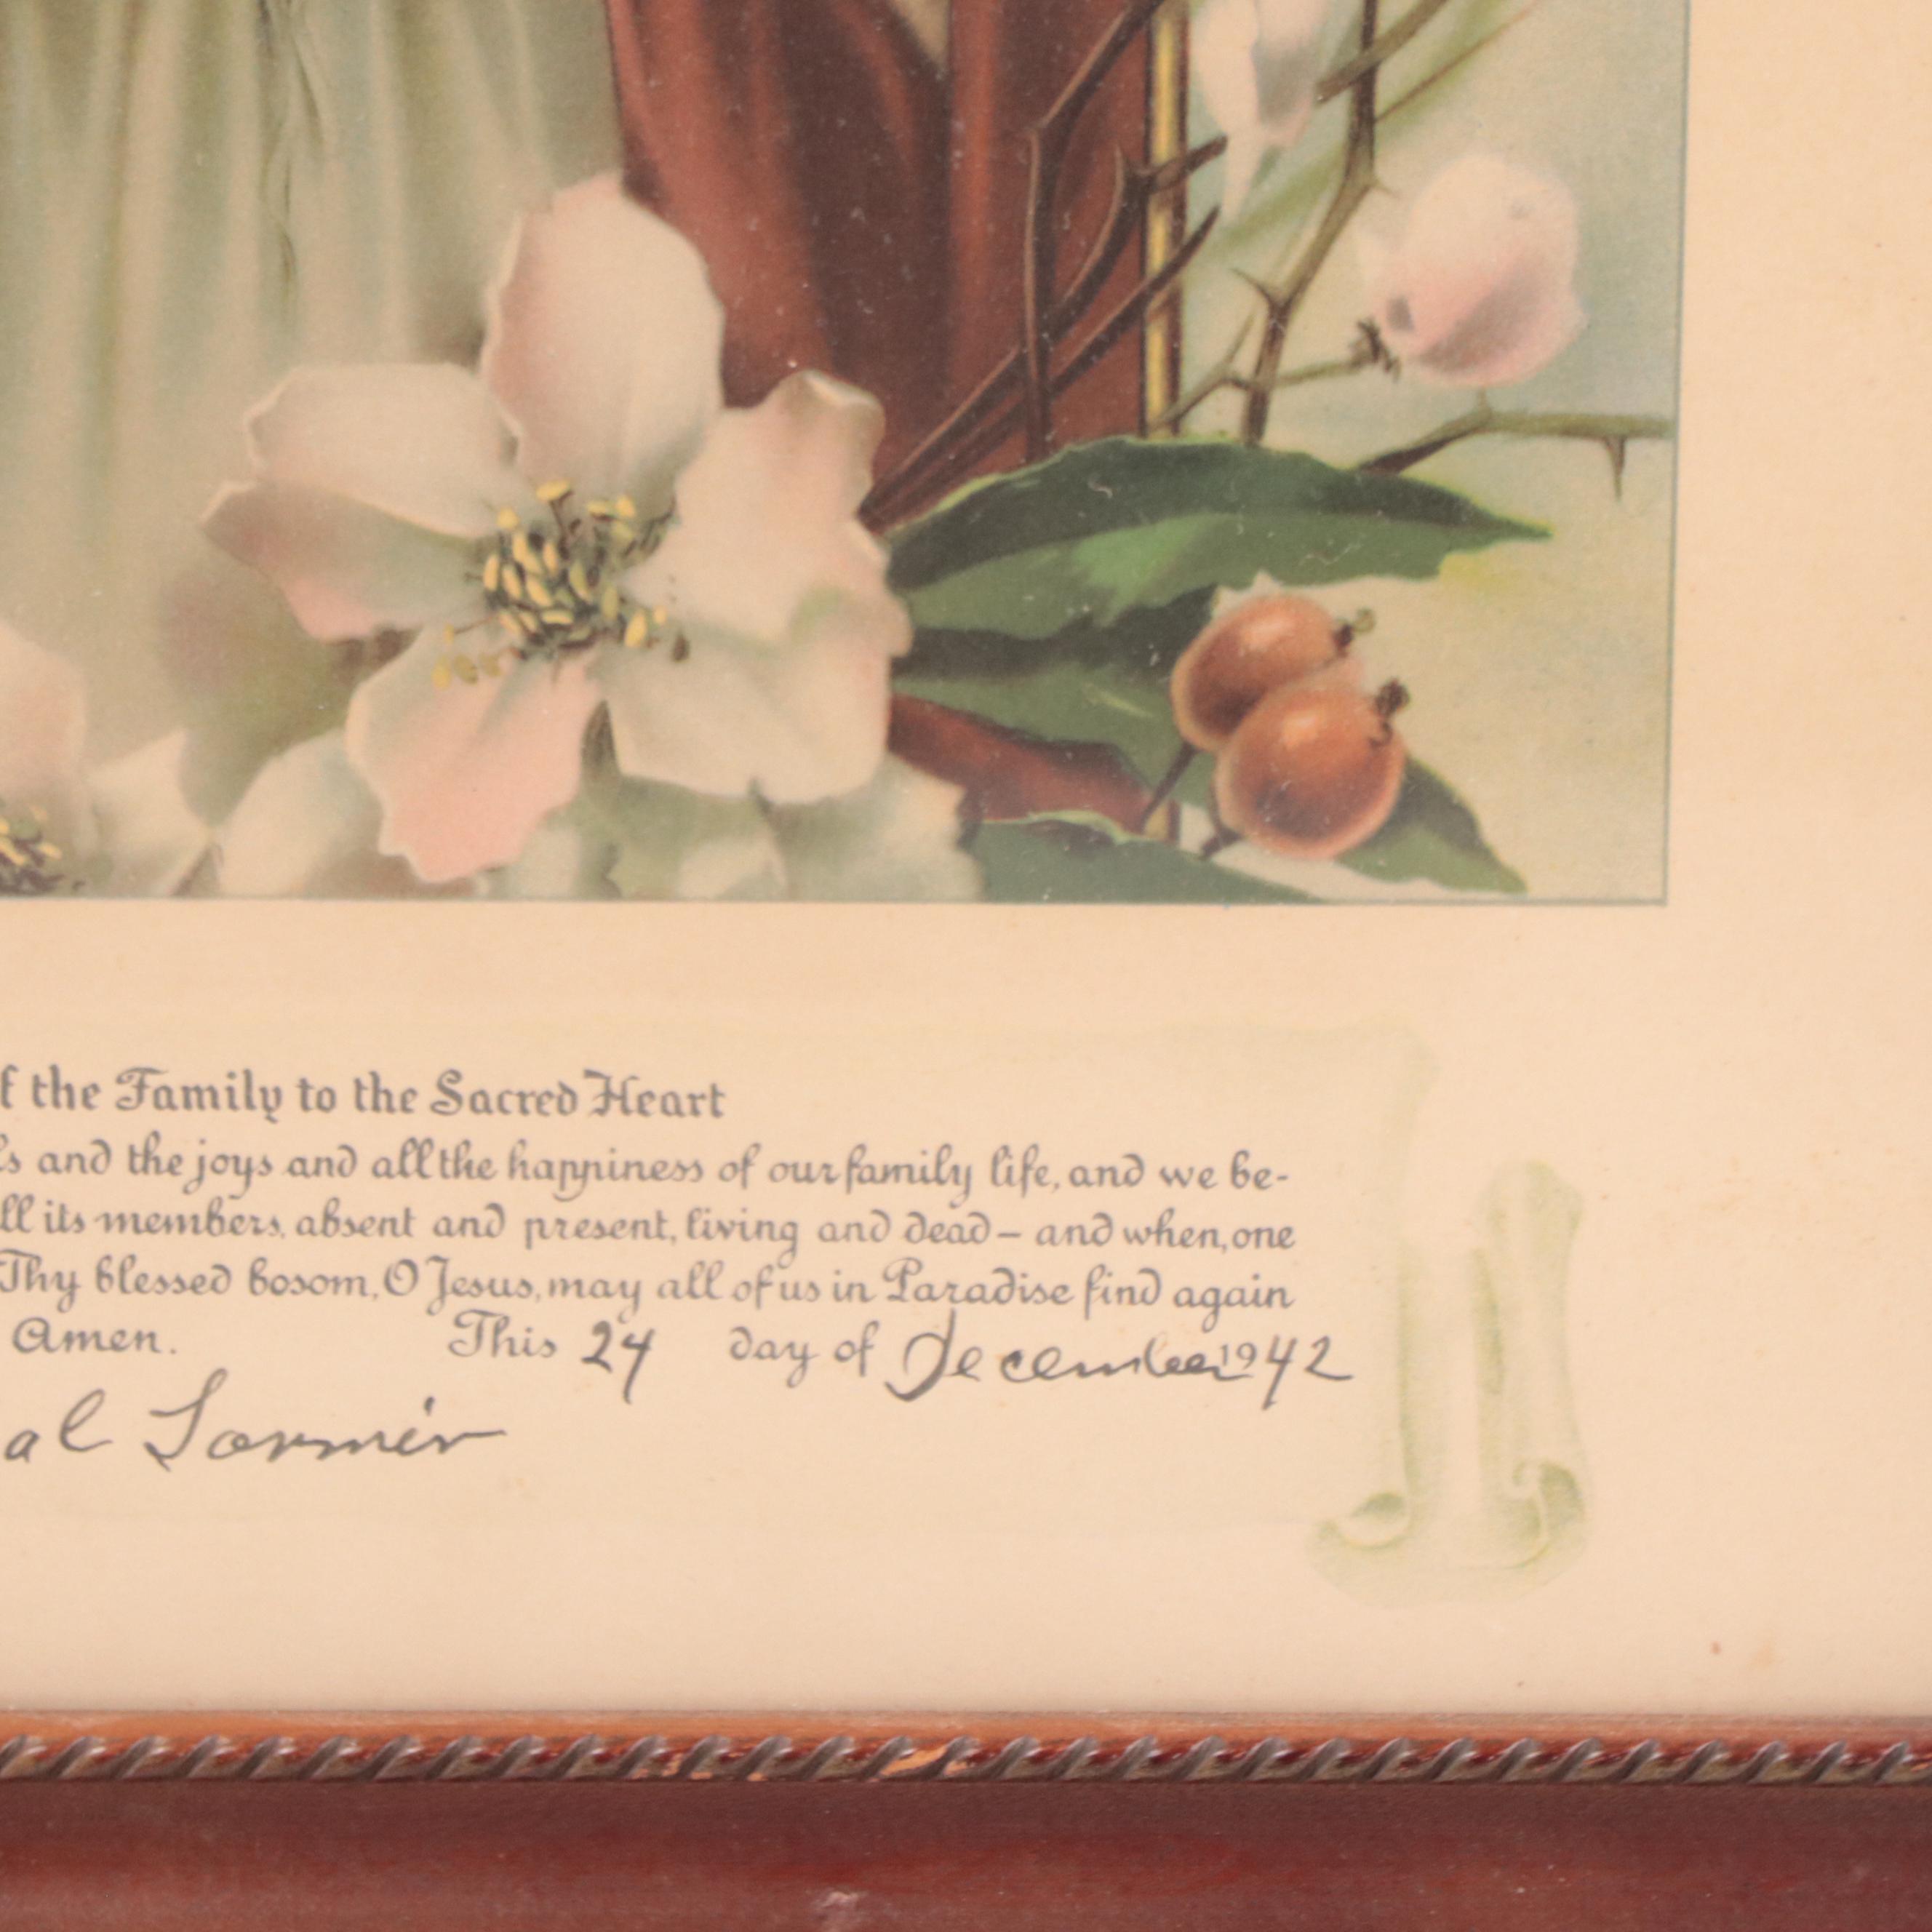 f the Family to the Sacred Heart
ls and the joys and all the happiness of our family life, and we be-
ll its members, absent and present, living and dead – and when, one
Thy blessed bosom, O Jesus, may all of us in Paradise find again
Amen. This 24 day of December 1942
al